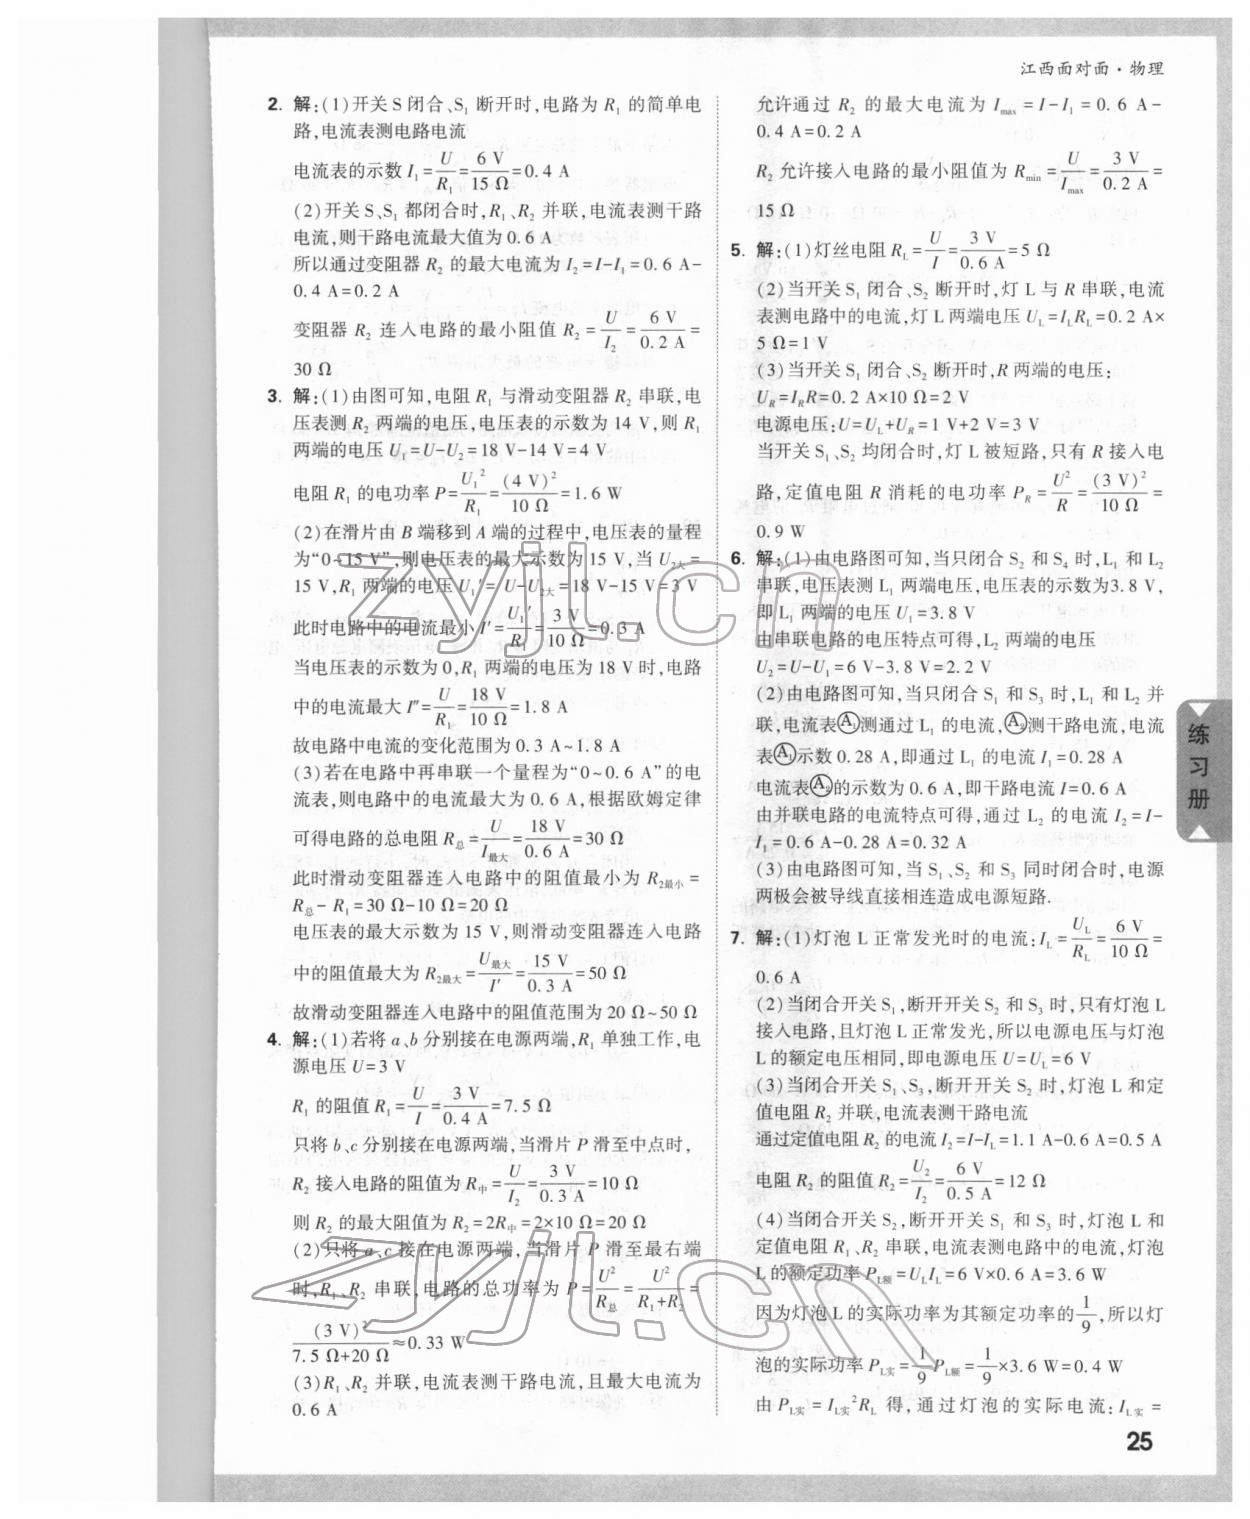 江西面对面·物理
2. 解:(1)开关 S 闭合、S₁ 断开时,电路为 R₁ 的简单电
路,电流表测电路电流
电流表的示数 I₁=U/R₁=6 V/15 Ω=0.4 A
(2)开关 S、S₁ 都闭合时,R₁、R₂ 并联,电流表测干路
电流,则干路电流最大值为 0.6 A
所以通过变阻器 R₂ 的最大电流为 I₂=I-I₁=0.6 A-
0.4 A=0.2 A
变阻器 R₂ 连入电路的最小阻值 R₂=U/I₂=6 V/0.2 A=
30 Ω
3. 解:(1)由图可知,电阻 R₁ 与滑动变阻器 R₂ 串联,电
压表测 R₂ 两端的电压,电压表的示数为 14 V,则 R₁
两端的电压 U₁=U-U₂=18 V-14 V=4 V
电阻 R₁ 的电功率 P=U₁²/R₁=(4 V)²/10 Ω=1.6 W
(2)在滑片由 B 端移到 A 端的过程中,电压表的量程
为“0~15 V”,则电压表的最大示数为 15 V,当 U₂大=
15 V,R₁ 两端的电压 U₁′=U-U₂大=18 V-15 V=3 V
此时电路中的电流最小 I′=U₁′/R₁=3 V/10 Ω=0.3 A
当电压表的示数为 0,R₁ 两端的电压为 18 V 时,电路
中的电流最大 I″=U/R₁=18 V/10 Ω=1.8 A
故电路中电流的变化范围为 0.3 A~1.8 A
(3)若在电路中再串联一个量程为“0~0.6 A”的电
流表,则电路中的电流最大为 0.6 A,根据欧姆定律
可得电路的总电阻 R总=U/I最大=18 V/0.6 A=30 Ω
此时滑动变阻器连入电路中的阻值最小为 R₂最小=
R总-R₁=30 Ω-10 Ω=20 Ω
电压表的最大示数为 15 V,则滑动变阻器连入电路
中的阻值最大为 R₂最大=U最大/I′=15 V/0.3 A=50 Ω
故滑动变阻器连入电路中的阻值范围为 20 Ω~50 Ω
4. 解:(1)若将 a、b 分别接在电源两端,R₁ 单独工作,电
源电压 U=3 V
R₁ 的阻值 R₁=U/I=3 V/0.4 A=7.5 Ω
只将 b、c 分别接在电源两端,当滑片 P 滑至中点时,
R₂ 接入电路的阻值为 R中=U/I₂=3 V/0.3 A=10 Ω
则 R₂ 的最大阻值为 R₂=2R中=2×10 Ω=20 Ω
(2)只将 a、c 接在电源两端,当滑片 P 滑至最右端
时,R₁、R₂ 串联,电路的总功率为 P=U²/R总=U²/(R₁+R₂)=
(3 V)²/(7.5 Ω+20 Ω)≈0.33 W
(3)R₁、R₂ 并联,电流表测干路电流,且最大电流为
0.6 A
允许通过 R₂ 的最大电流为 Imax=I-I₁=0.6 A-
0.4 A=0.2 A
R₂ 允许接入电路的最小阻值为 Rmin=U/Imax=3 V/0.2 A=
15 Ω
5. 解:(1)灯丝电阻 RL=U/I=3 V/0.6 A=5 Ω
(2)当开关 S₁ 闭合、S₂ 断开时,灯 L 与 R 串联,电流
表测电路中的电流,灯 L 两端电压 UL=ILRL=0.2 A×
5 Ω=1 V
(3)当开关 S₁ 闭合、S₂ 断开时,R 两端的电压:
UR=IRR=0.2 A×10 Ω=2 V
电源电压:U=UL+UR=1 V+2 V=3 V
当开关 S₁、S₂ 均闭合时,灯 L 被短路,只有 R 接入电
路,定值电阻 R 消耗的电功率 PR=U²/R=(3 V)²/10 Ω=
0.9 W
6. 解:(1)由电路图可知,当只闭合 S₂ 和 S₄ 时,L₁ 和 L₂
串联,电压表测 L₁ 两端电压,电压表的示数为3.8 V,
即 L₁ 两端的电压 U₁=3.8 V
由串联电路的电压特点可得,L₂ 两端的电压
U₂=U-U₁=6 V-3.8 V=2.2 V
(2)由电路图可知,当只闭合 S₁ 和 S₃ 时,L₁ 和 L₂ 并
联,电流表Ⓐ₁测通过 L₁ 的电流,Ⓐ₂测干路电流,电流
表Ⓐ₁示数 0.28 A,即通过 L₁ 的电流 I₁=0.28 A
电流表Ⓐ₂的示数为 0.6 A,即干路电流 I=0.6 A
由并联电路的电流特点可得,通过 L₂ 的电流 I₂=I-
I₁=0.6 A-0.28 A=0.32 A
(3)由电路图可知,当 S₁、S₂ 和 S₃ 同时闭合时,电源
两极会被导线直接相连造成电源短路.
7. 解:(1)灯泡 L 正常发光时的电流:IL=UL/RL=6 V/10 Ω=
0.6 A
(2)当闭合开关 S₁,断开开关 S₂ 和 S₃ 时,只有灯泡 L
接入电路,且灯泡 L 正常发光,所以电源电压与灯泡
L 的额定电压相同,即电源电压 U=UL=6 V
(3)当闭合开关 S₁、S₃,断开开关 S₂ 时,灯泡 L 和定
值电阻 R₂ 并联,电流表测干路电流
通过定值电阻 R₂ 的电流 I₂=I-IL=1.1 A-0.6 A=0.5 A
电阻 R₂ 的阻值 R₂=U₂/I₂=6 V/0.5 A=12 Ω
(4)当闭合开关 S₂,断开开关 S₁ 和 S₃ 时,灯泡 L 和
定值电阻 R₁、R₂ 串联,电流表测电路中的电流,灯泡
L 的额定功率 PL额=ULIL=6 V×0.6 A=3.6 W
因为灯泡 L 的实际功率为其额定功率的1/9,所以灯
泡的实际功率 PL实=1/9PL额=1/9×3.6 W=0.4 W
由 PL实=IL实²RL 得,通过灯泡的实际电流:IL实=
练习册
25
zyjl.cn
zyjl.cn